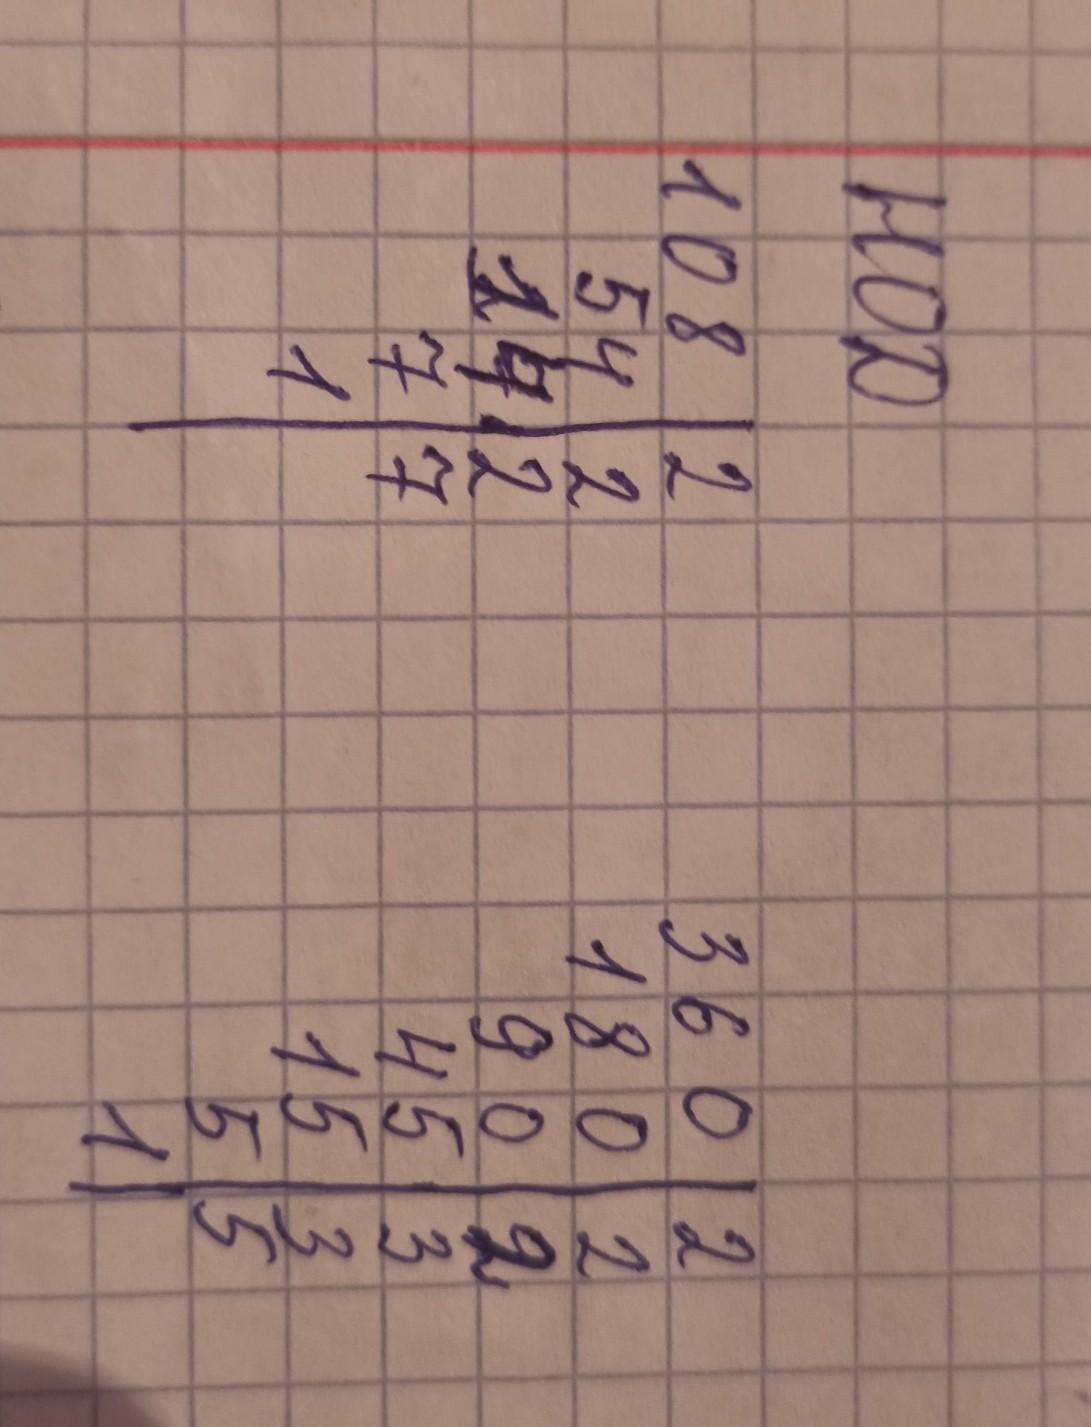 НОД
108 | 2    360 | 2
54 | 2    180 | 2
14 | 2    90 | 2
7 | 7    45 | 3
1    15 | 3
5 | 5
1